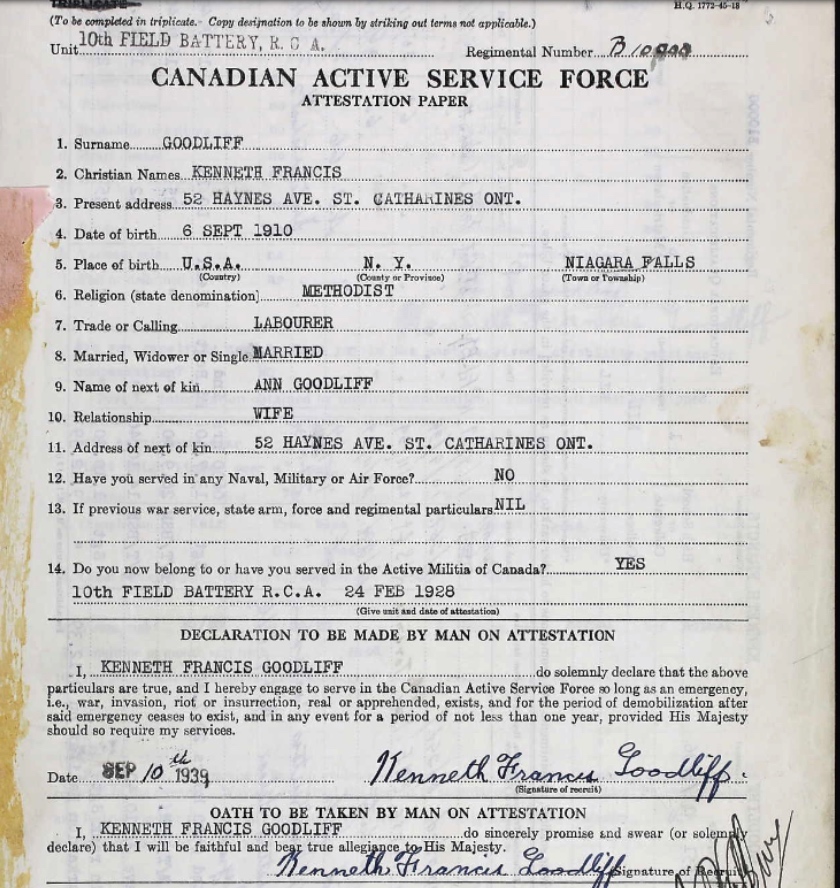 TRIPLICATE
H.Q. 1772-45-18
(To be completed in triplicate. Copy designation to be shown by striking out terms not applicable.)
Unit 10th FIELD BATTERY, R. C A. Regimental Number
CANADIAN ACTIVE SERVICE FORCE
ATTESTATION PAPER
1. Surname GOODLIFF
2. Christian Names KENNETH FRANCIS
3. Present address 52 HAYNES AVE. ST. CATHARINES ONT.
4. Date of birth 6 SEPT 1910
5. Place of birth U.S.A. N. Y. NIAGARA FALLS
(Country) (County or Province) (Town or Township)
6. Religion (state denomination) METHODIST
7. Trade or Calling LABOURER
8. Married, Widower or Single MARRIED
9. Name of next of kin ANN GOODLIFF
10. Relationship WIFE
11. Address of next of kin 52 HAYNES AVE. ST. CATHARINES ONT.
12. Have you served in any Naval, Military or Air Force? NO
13. If previous war service, state arm, force and regimental particulars NIL
14. Do you now belong to or have you served in the Active Militia of Canada? YES
10th FIELD BATTERY R.C.A. 24 FEB 1928
(Give unit and date of attestation)
DECLARATION TO BE MADE BY MAN ON ATTESTATION
I, KENNETH FRANCIS GOODLIFF do solemnly declare that the above
particulars are true, and I hereby engage to serve in the Canadian Active Service Force so long as an emergency,
i.e., war, invasion, riot or insurrection, real or apprehended, exists, and for the period of demobilization after
said emergency ceases to exist, and in any event for a period of not less than one year, provided His Majesty
should so require my services.
Date SEP 10th 1939 Kenneth Francis Goodliff
(Signature of recruit)
OATH TO BE TAKEN BY MAN ON ATTESTATION
I, KENNETH FRANCIS GOODLIFF do sincerely promise and swear (or solemnly
declare) that I will be faithful and bear true allegiance to His Majesty.
Kenneth Francis Goodliff Signature of Recruit